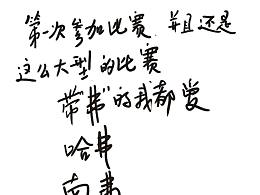 第一次参加比赛.并且还是
这么大型的比赛
带“弗”的我都爱
哈弗
南弗